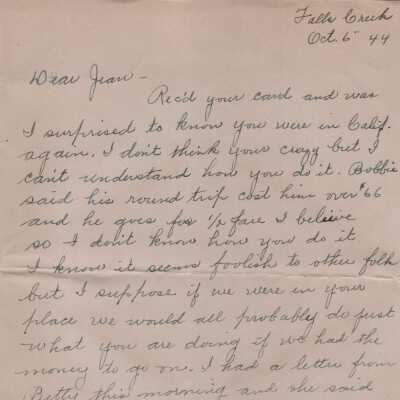 Falls Creek
Oct. 6 44
Dear Jean -
Rec'd your card and was
I surprised to know you were in Calif.
again. I don't think your crazy but I
can't understand how you do it. Bobbie
said his round trip cost him over $66
and he goes for 1/2 fare I believe
so I don't know how you do it
I know it seems foolish to other folk
but I suppose if we were in your
place we would all probably do just
what you are doing if we had the
money to go on. I had a letter from
Betty this morning and she said